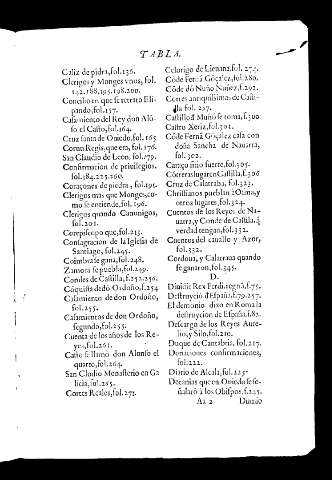 TABLA.
Caliz de pidra, fol.136.
Clerigos y Monges vnos, fol.
142.188.195.198.200.
Concilio en que se retrato Eli-
pando, fol.157.
Casamiento del Rey don Alõ-
so el Casto, fol.164.
Cruz santa de Oviedo, fol.165
Cortes Regis, que era, fol.176.
San Claudio de Leon, fol.179.
Confirmacion de privilegios,
fol.184.225.260.
Coraçones de piedra, fol.195.
Clerigos mas que Monges, co-
mo se entiende, fol.196.
Clerigos quando Canonigos,
fol.201.
Corepiscopo que, fol.213.
Consagracion de la Iglesia de
Santiago, fol.245.
Coimbra se gana, fol.248.
Zamora se puebla, fol.249.
Condes de Castilla, fol.252.256.
Cõquista de dõ Ordoño, f.254
Casamiento de don Ordoño,
fol.255.
Casamientos de don Ordoño,
segundo, fol.255.
Cuenta de los años de los Re-
yes, fol.261.
Caso se llamò don Alonso el
quarto, fol.264.
San Clodio Monasterio en Ga
licia, fol.265.
Cortes Reales, fol.273.
Celorigo de Lievana, fol.274.
Cõde Fernã Gõçalez, fol.280.
Cõde dõ Nuño Nuñez, f.292.
Cortes antiquissimas de Casti-
lla fol.257.
Castillo d Muño se toma, f.300
Castro Xeriz, fol.301.
Cõde Fernã Gõçalez casa con
doña Sancha de Nauarra,
fol.302.
Carazo sitio fuerte, fol.305.
Corrersus lugares Castilla, f.306
Cruz de Calatraba, fol.323.
Christianos pueblan a Osma, y
otros lugares, fol.324.
Cuentos de los Reyes de Na-
uarra, y Conde de Castilla, q̃
verdad tengan, fol.332.
Cuentos del cauallo y Azor,
fol.332.
Cordoua, y Calatraua quando
se ganaron, fol.345.
D.
Diuidit Rex Ferdi.regnũ, f.75.
Destruyciõ d España, f.79.257.
El demonio dixo en Roma la
destruycion de España f.82.
Descargo de los Reyes Aure-
lio, y Silo, fol.210.
Duque de Cantabria, fol.217.
Donaciones confirmaciones,
fol.222.
Diario de Alcala, fol.225.
Decanias que en Oviedo se se-
ñalarõ a los Obispos, f.245.
Aa 2 Diuisio